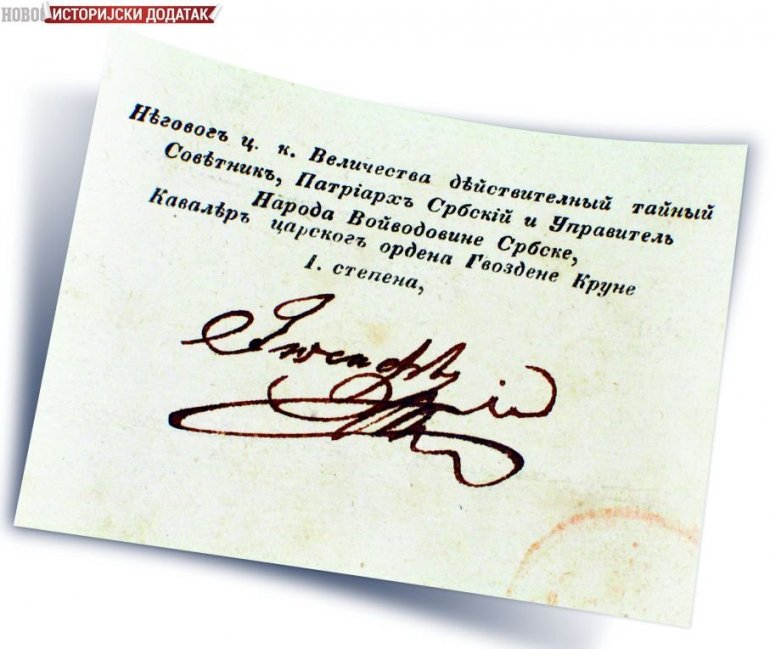 НОВО ИСТОРИЈСКИ ДОДАТАК
Нѣговогъ ц. к. Величества дѣйствителный тайный
Совѣтникъ, Патріархъ Србскій и Управитель
Народа Войводовине Србске,
Кавалѣръ царскогъ ордена Гвоздене Круне
1. степена,